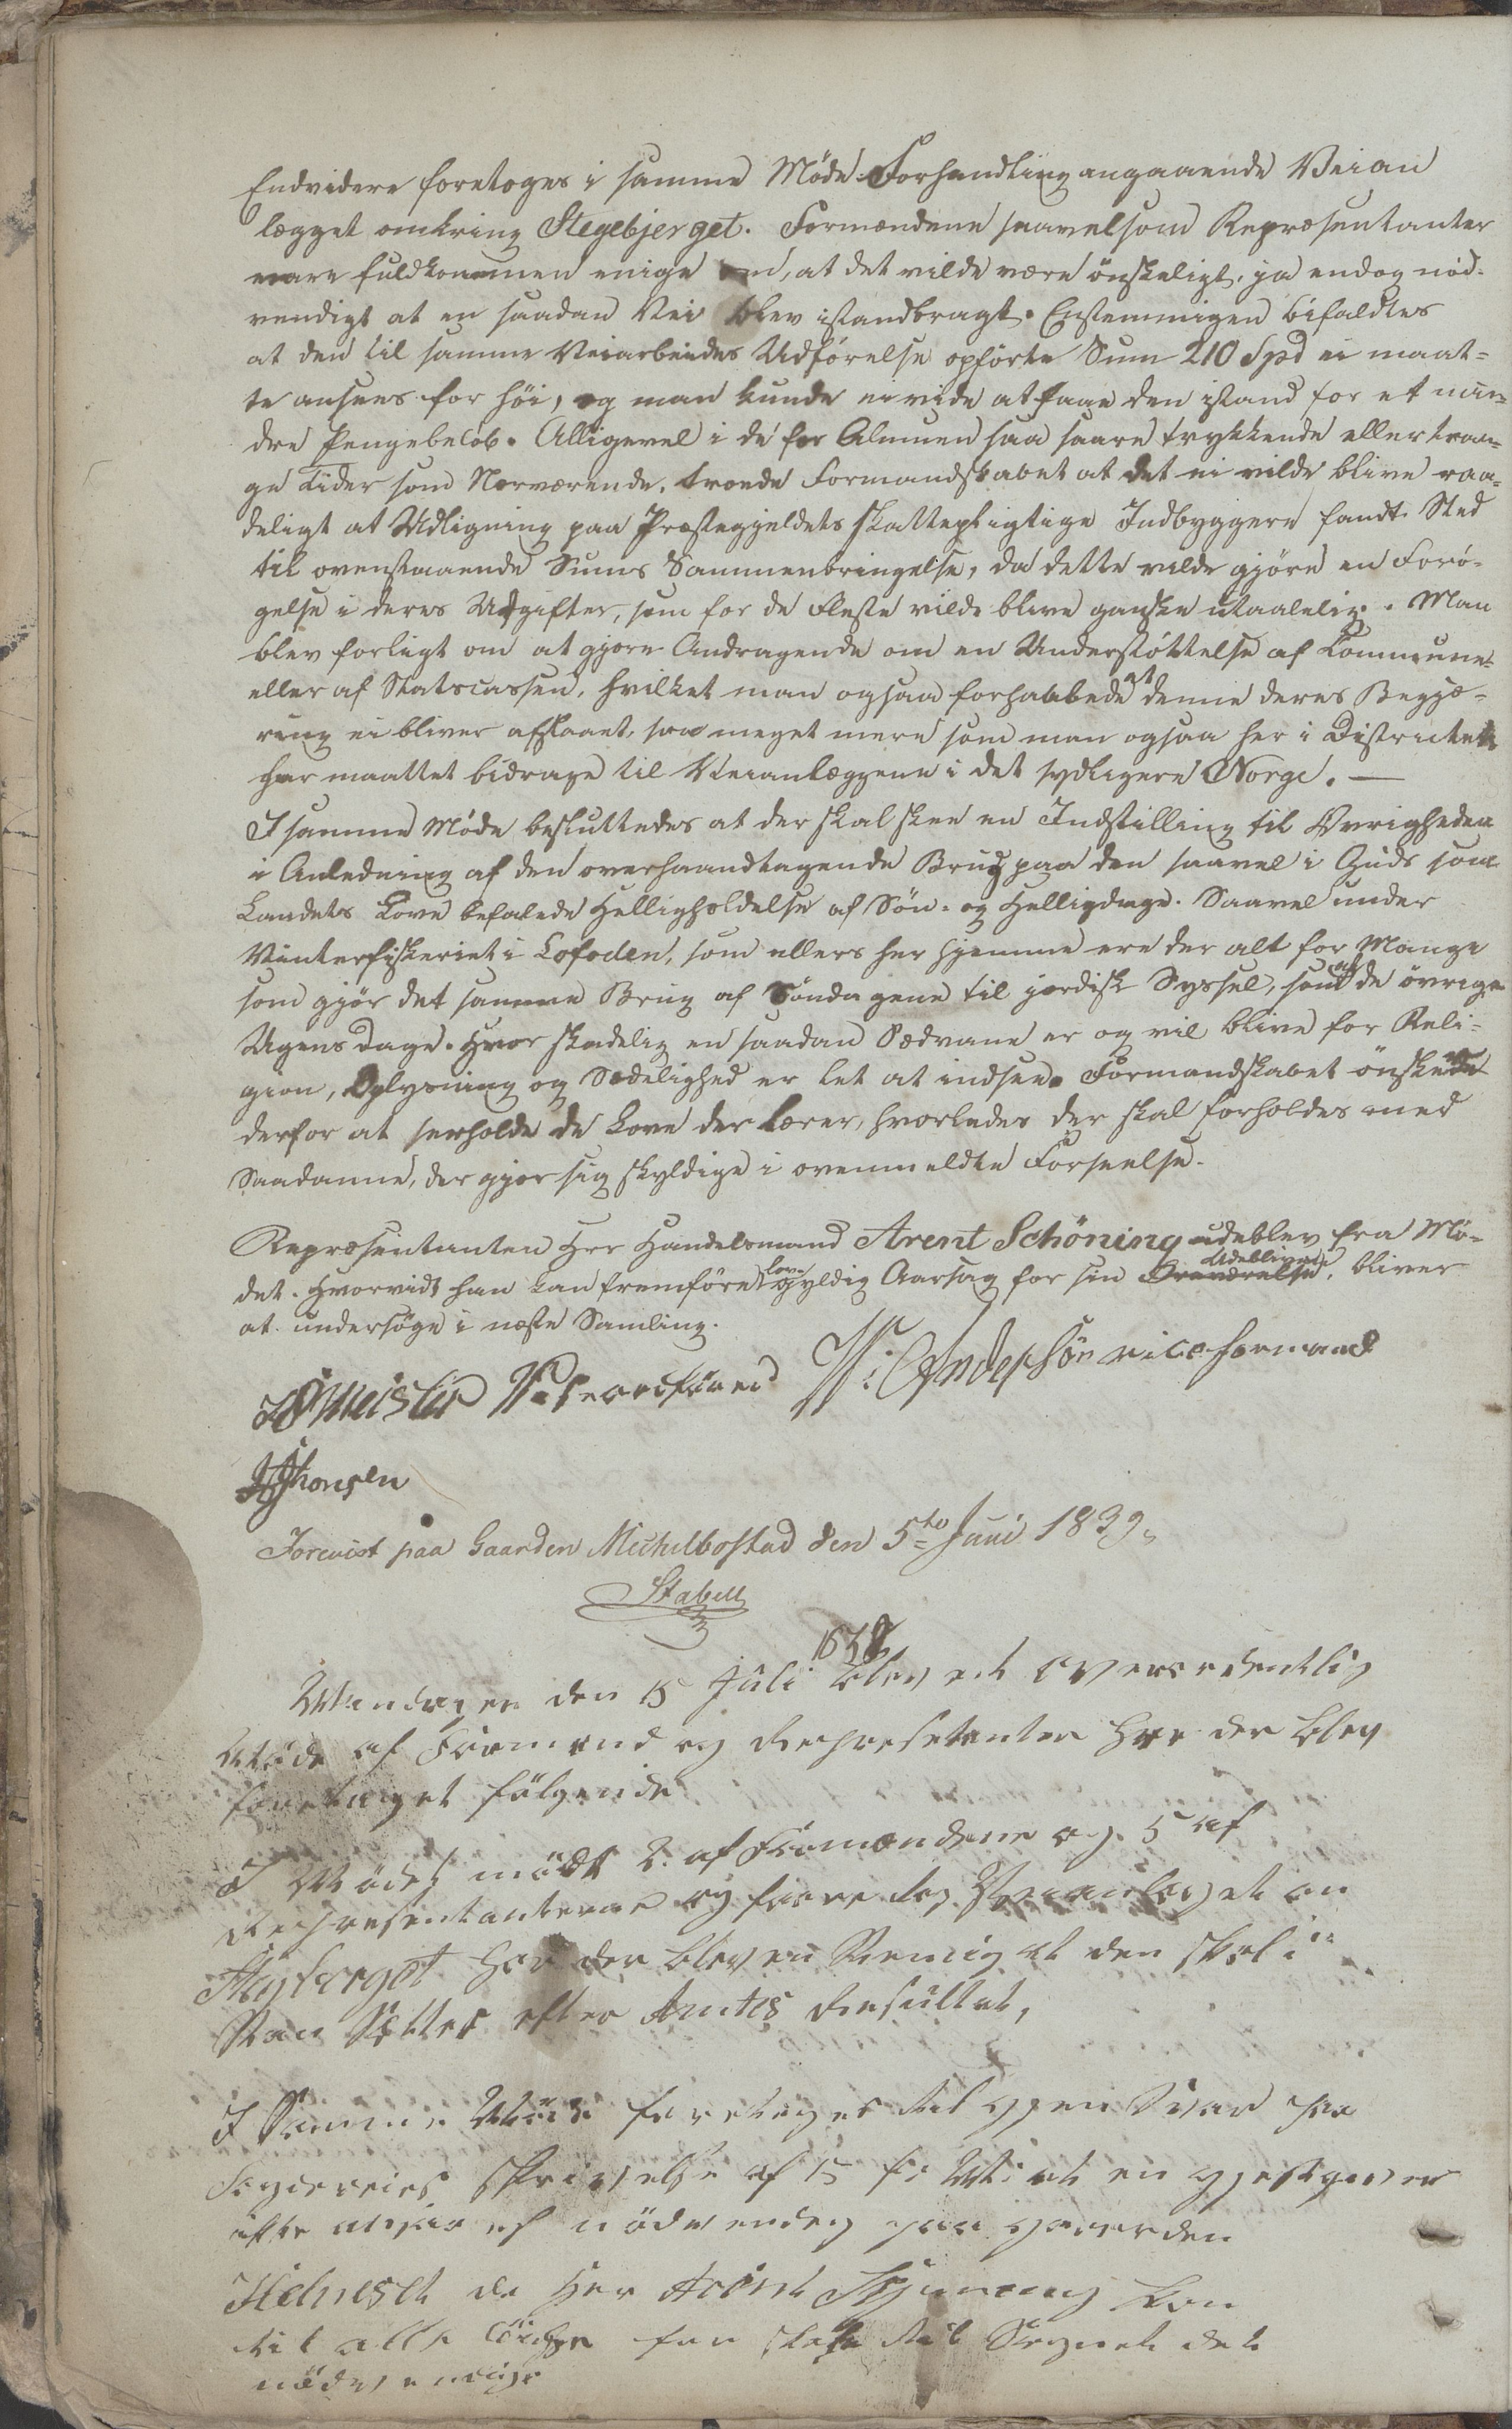 Endvidere foretoges i samme Møde Forhandling angaaende Veian
lægget omkring Stegebjerget. Formændene saavelsom Repræsentanter
vare fuldkommen enige om, at det vilde være önskeligt, ja endog nød-
vendigt at en saadan Vei blev istandbragt. Enstemmigen bifaldtes
at den til samme Veiarbeides Udförelse opförte Sum 210 Spd ei maat-
te ansees for höi, og man kunde ei vide at faae den istand for et min-
dre Pengebelöb. Alligevel i de for Almuen saa saare trykkende eller tran-
ge Tider som Nærværende, troede Formandskabet at det ei vilde blive raa-
deligt at Udligning paa Præstegjeldets skattepligtige Indbyggere fandt Sted
til ovenstaaende Sums Sammenbringelse, da dette vilde gjöre en Forö-
gelse i deres Udgifter, som for de Fleste vilde blive ganske utaalelig. Man
blev forligt om at gjöre Andragende om en Understöttelse af Commune-
eller af Statscassen, hvilket man ogsaa forhaabede at denne deres Begjæ-
ring ei bliver afslaaet, saa meget mere som man ogsaa her i Districtet
har maattet bidrage til Veianlæggene i det sydligere Norge. —
I samme Møde besluttedes at der skal skee en Indstilling til Øvrigheden
i Anledning af den overhaandtagende Brug paa den saavel i Guds som
Landets Love befalede Helligholdelse af Søn- og Helligdage. Saavel under
Vinterfiskeriet i Lofoden, som ellers her hjemme ere der alt for Mange
som gjör det samme Brug af Söndagene til jordisk Syssel, som af de övrige
Ugens Dage. Hvor skadelig en saadan Sædvane er og vil blive for Reli-
gion, Oplysning og Sædelighed er let at indsee. Formandskabet önskede
derfor at erholde de Love der lærer, hvorledes der skal forholdes med
Saadanne, der gjör sig skyldige i ovenmeldte Forseelse.
Repræsentanten Hr Handelsmand Arent Schöning udeblev fra Mö-
det. Hvorvidt han kan fremföre lovgyldig Aarsag for sin Udeblivelse, bliver
at undersöge i næste Samling.
Meisler Ordförer Andersön viceformand
Jhonsen
Forevist paa Gaarden Michelbostad den 5te Juni 1839.
Stabell
Mandagen den 15 Juli 1839 blev et Overordentlig
Möde af Formend og Representanter hvor der blev
foretaget fölgende
I Mödet mödt 2 af Formændene og 5 af
Representanterne og foretog Veianleget om
Stegberget hvor der blev en Stemig at den skal i
Stan Settes efter Amtes Resultat,
I Samme Möde foretoges til gjen Svar paa
Skrivelse af 15 at en gjestgiver
ikke nödvendig paa gaarden
da Her Arent Skjuning kan
til alle for Skafe til Segnet det
nödvendige